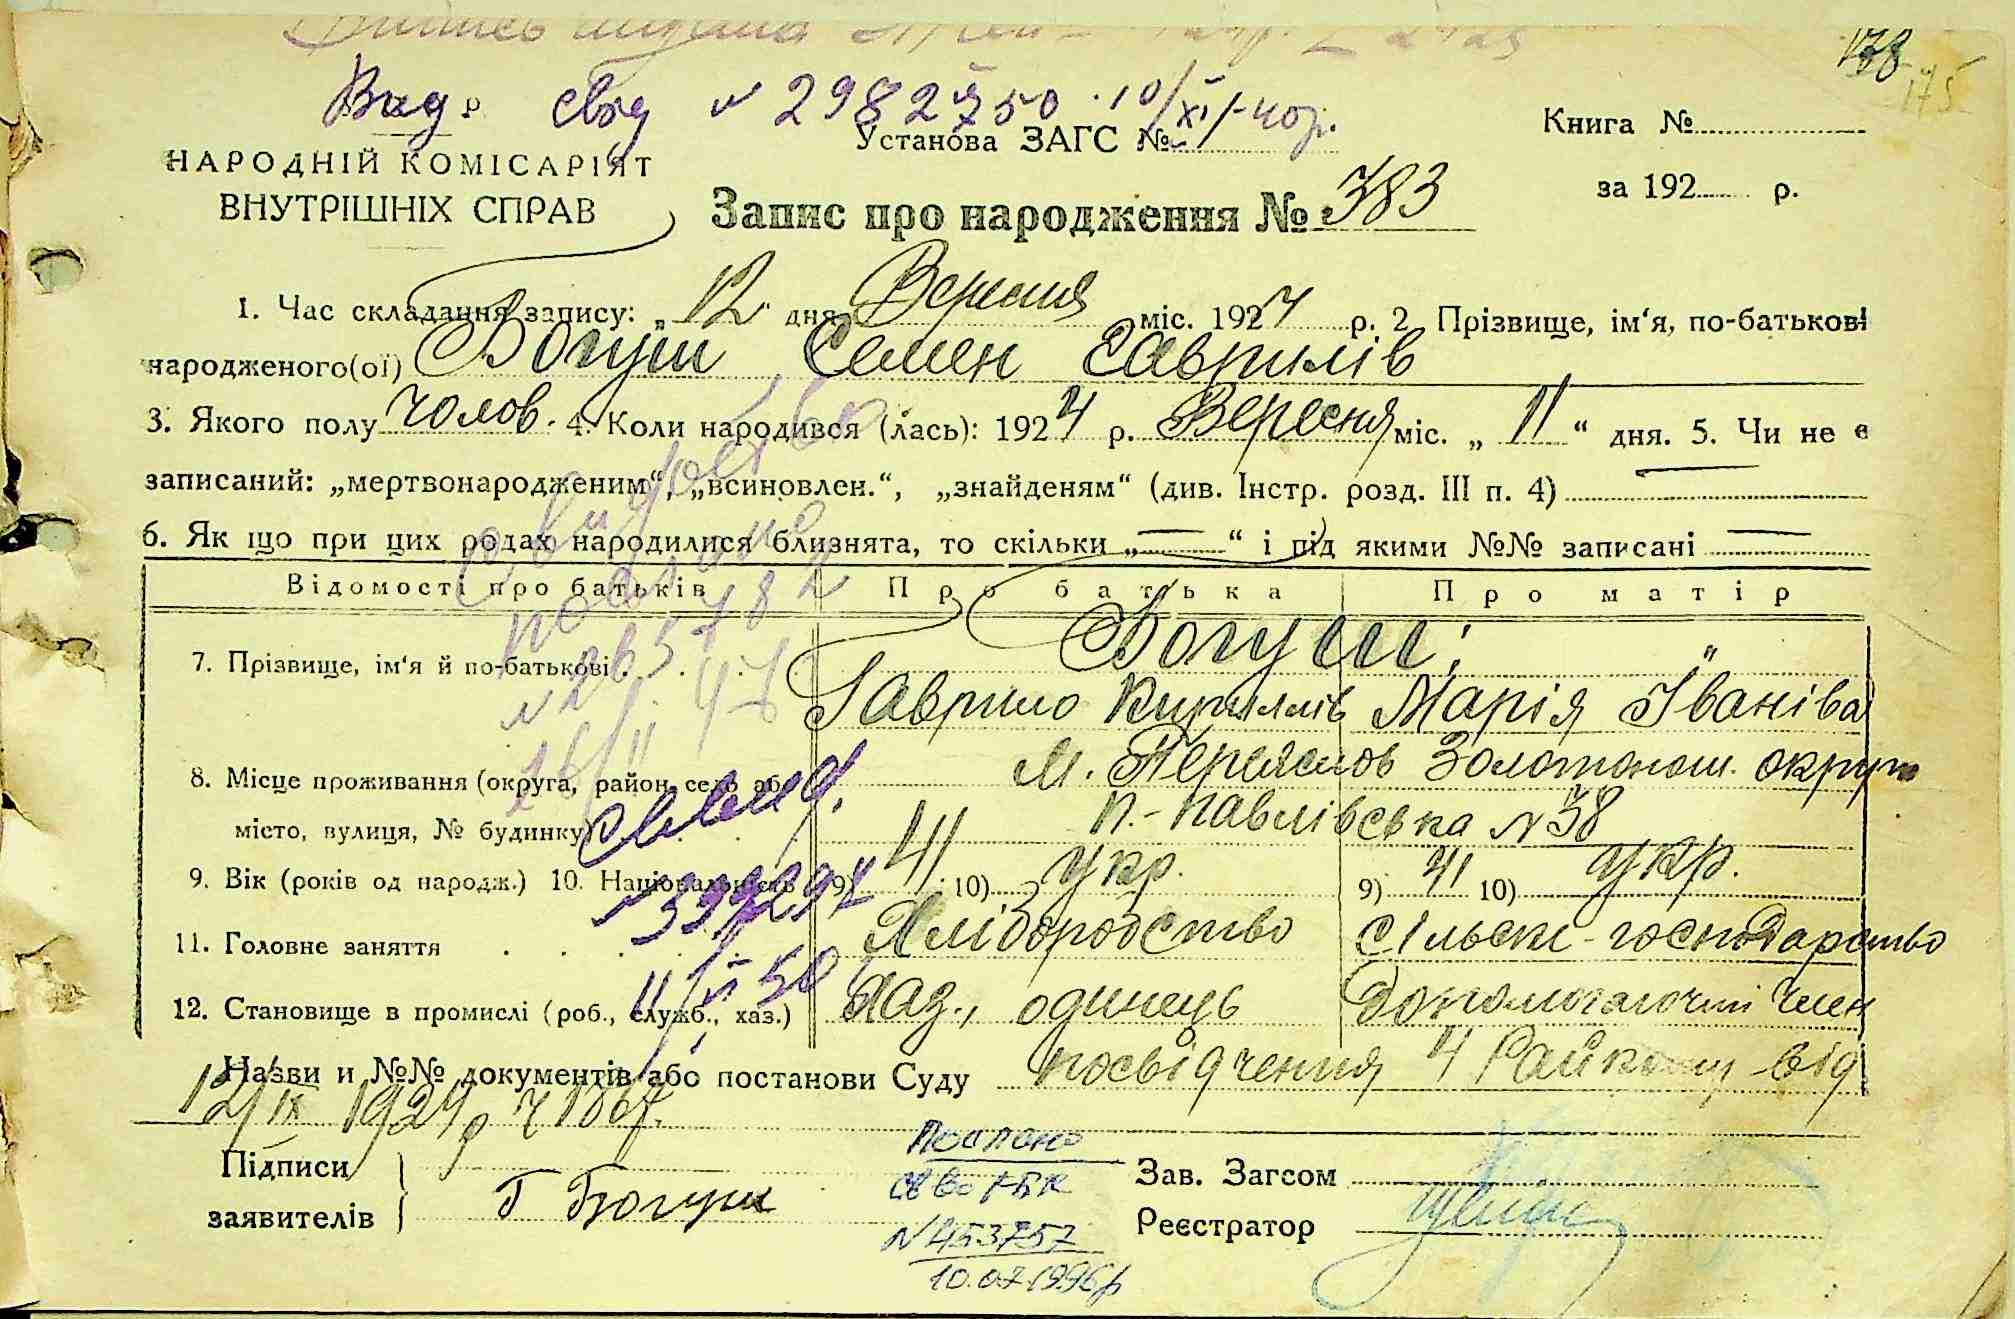 178
175
Вид. свід № 2982750 · 10/XI-40р.
Установа ЗАГС №
Книга №
НАРОДНІЙ КОМІСАРІЯТ
ВНУТРІШНІХ СПРАВ
за 192 р.
Запис про народження № 383
1. Час складання запису: „12" дня Вересня міс. 1924 р. 2 Прізвище, ім'я, по-батькові
народженого(ої) Богуш Семен Гаврилів
3. Якого полу чолов. 4. Коли народився (лась): 1924 р. Вересня міс. „11" дня. 5. Чи не є
записаний: „мертвонародженим", „всиновлен.", „знайденям" (див. Інстр. розд. III п. 4) —
6. Як що при цих родах народилися близнята, то скільки „—" і під якими №№ записані —
Відомості про батьків Про батька Про матір
7. Прізвище, ім'я й по-батькові Богуш; "
Гаврило Кирилів Марія Іваніва
8. Місце проживання (округа, район, село або м. Переяслов Золотонош. округи
місто, вулиця, № будинку) П.-Павлівська № 38
9. Вік (років од народж.) 10. Національність 9) 41 10) укр. 9) 41 10) укр.
11. Головне заняття Хліборобство сільське-господарство
12. Становище в промислі (роб., служб., хаз.) Хаз., одинець Допомогаючий член
Назви и №№ документів або постанови Суду посвідчення 4 Райкому від
12/IX 1924р ч 1867.
Свідоцтво
послано
16/II 47
Свид.
№ 394294
11/VI 50
Підписи
заявителів
Г Богуш
Послано
св во НБК
№ 453757
10.07.1996р
Зав. Загсом
Реєстратор